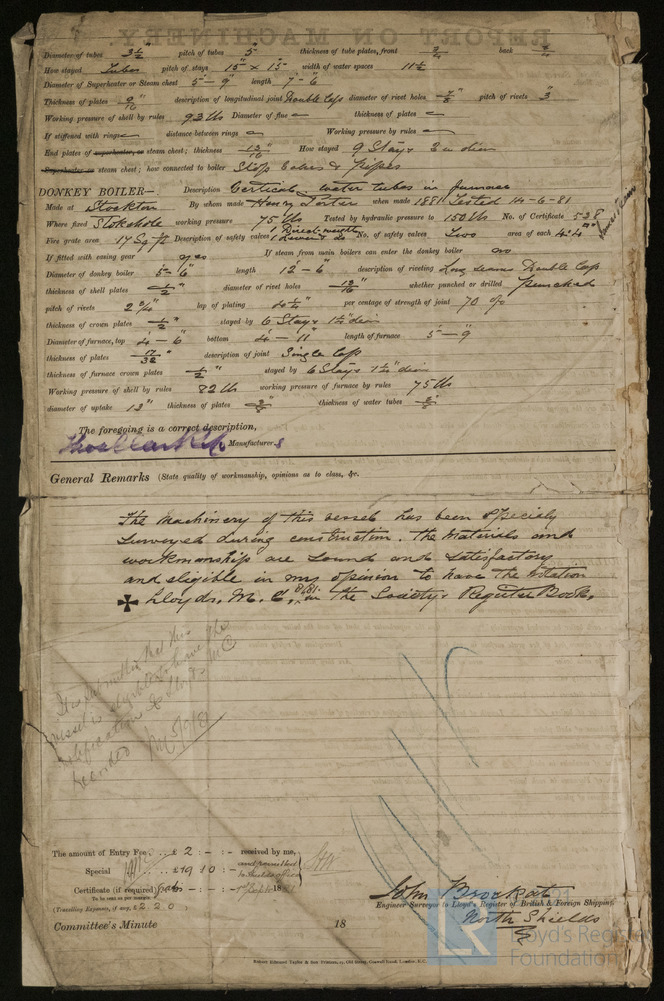 Diameter of tubes 3½" pitch of tubes 5" thickness of tube plates, front ¾ back ¾"
How stayed Tubes pitch of stays 15" x 15" width of water spaces 11½
Diameter of Superheater or Steam chest 5'-9" length 7'-6
Thickness of plates 9/16" description of longitudinal joint Double Lap diameter of rivet holes 7/8" pitch of rivets 3"
Working pressure of shell by rules 93 lbs Diameter of flue — thickness of plates —
If stiffened with rings — distance between rings — Working pressure by rules —
End plates of superheater, or steam chest; thickness 13/16" How stayed 9 Stays 2 in diam
Superheater or steam chest; how connected to boiler Stop & pipes
DONKEY BOILER— Description Vertical, water tubes in furnace
Made at Stockton By whom made Henry when made 1881 Tested 14-6-81
Where fixed Stokehole working pressure 75 lbs Tested by hydraulic pressure to 150 lbs No. of Certificate 528
Fire grate area 17 Sq ft Description of safety valves 1 Direct weight 1 Lever & do No. of safety valves Two area of each 4"
If fitted with easing gear yes If steam from main boilers can enter the donkey boiler no
Diameter of donkey boiler 5'-6" length 12'-6" description of riveting Long seams Double Lap
thickness of shell plates ½" diameter of rivet holes 13/16" whether punched or drilled punched
pitch of rivets 2¾" lap of plating 4¼" per centage of strength of joint 70 o/o
thickness of crown plates ½" stayed by 6 Stays 1½" diam
Diameter of furnace, top 4'-6 bottom 4'-11 length of furnace 5'-9
thickness of plates 17/32" description of joint Single Lap
thickness of furnace crown plates ½" stayed by 6 Stays 1½" diam
Working pressure of shell by rules 82 lbs working pressure of furnace by rules 75 lbs
diameter of uptake 13" thickness of plates 3/8" thickness of water tubes 3/8"
The foregoing is a correct description,
Manufacturers
General Remarks (State quality of workmanship, opinions as to class, &c.
The Machinery of this vessel has been Specially
Surveyed during construction. The Materials and
workmanship are Sound and Satisfactory
and eligible in my opinion to have the Notation
✠ Lloyds. M. C., 9/81. in the Society's Register Book.
It is submitted that this
vessel is eligible to have the
notification ✠ Lloyds MC
recorded
The amount of Entry Fee .. £ 2 : - : - received by me,
Special .. £19 10 : -
Certificate (if required) - : - 18
To be sent as per margin
(Travelling Expenses, if any, £2.2.0)
John Brockat
Engineer Surveyor to Lloyd's Register of British & Foreign Shipping.
North Shields
Committee's Minute 18
LR
Lloyd's Register
Foundation